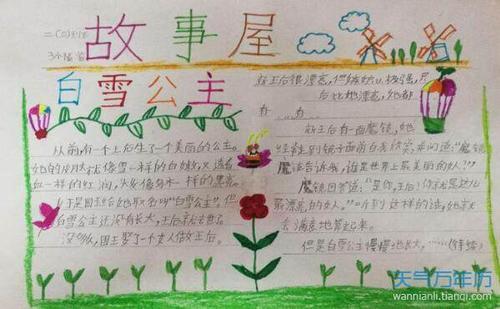 故事屋
白雪公主
从前,有一个王后生了一个美丽的公主。
她的皮肤就像雪一样的白嫩,又透着
血一样的红润,头发像乌木一样的黑亮。
于是国王给她取名叫“白雪公主”,但
白雪公主还没有长大,王后就去世了
没多久,国王娶了一个女人做王后。
新王后很漂亮,但
后比她漂亮,她都
新王后有一面魔镜,她
经常到镜子面前自我欣赏,并问道:“魔
魔法告诉我,谁是世界上最美丽的女人?”
魔镜回答道:“是你,王后!你就是这儿
最漂亮的女人。”听到这样的话,她就
满意地笑起来。
但是白雪公主慢慢地长大,……
天气万年历
wannianli.tianqi.com